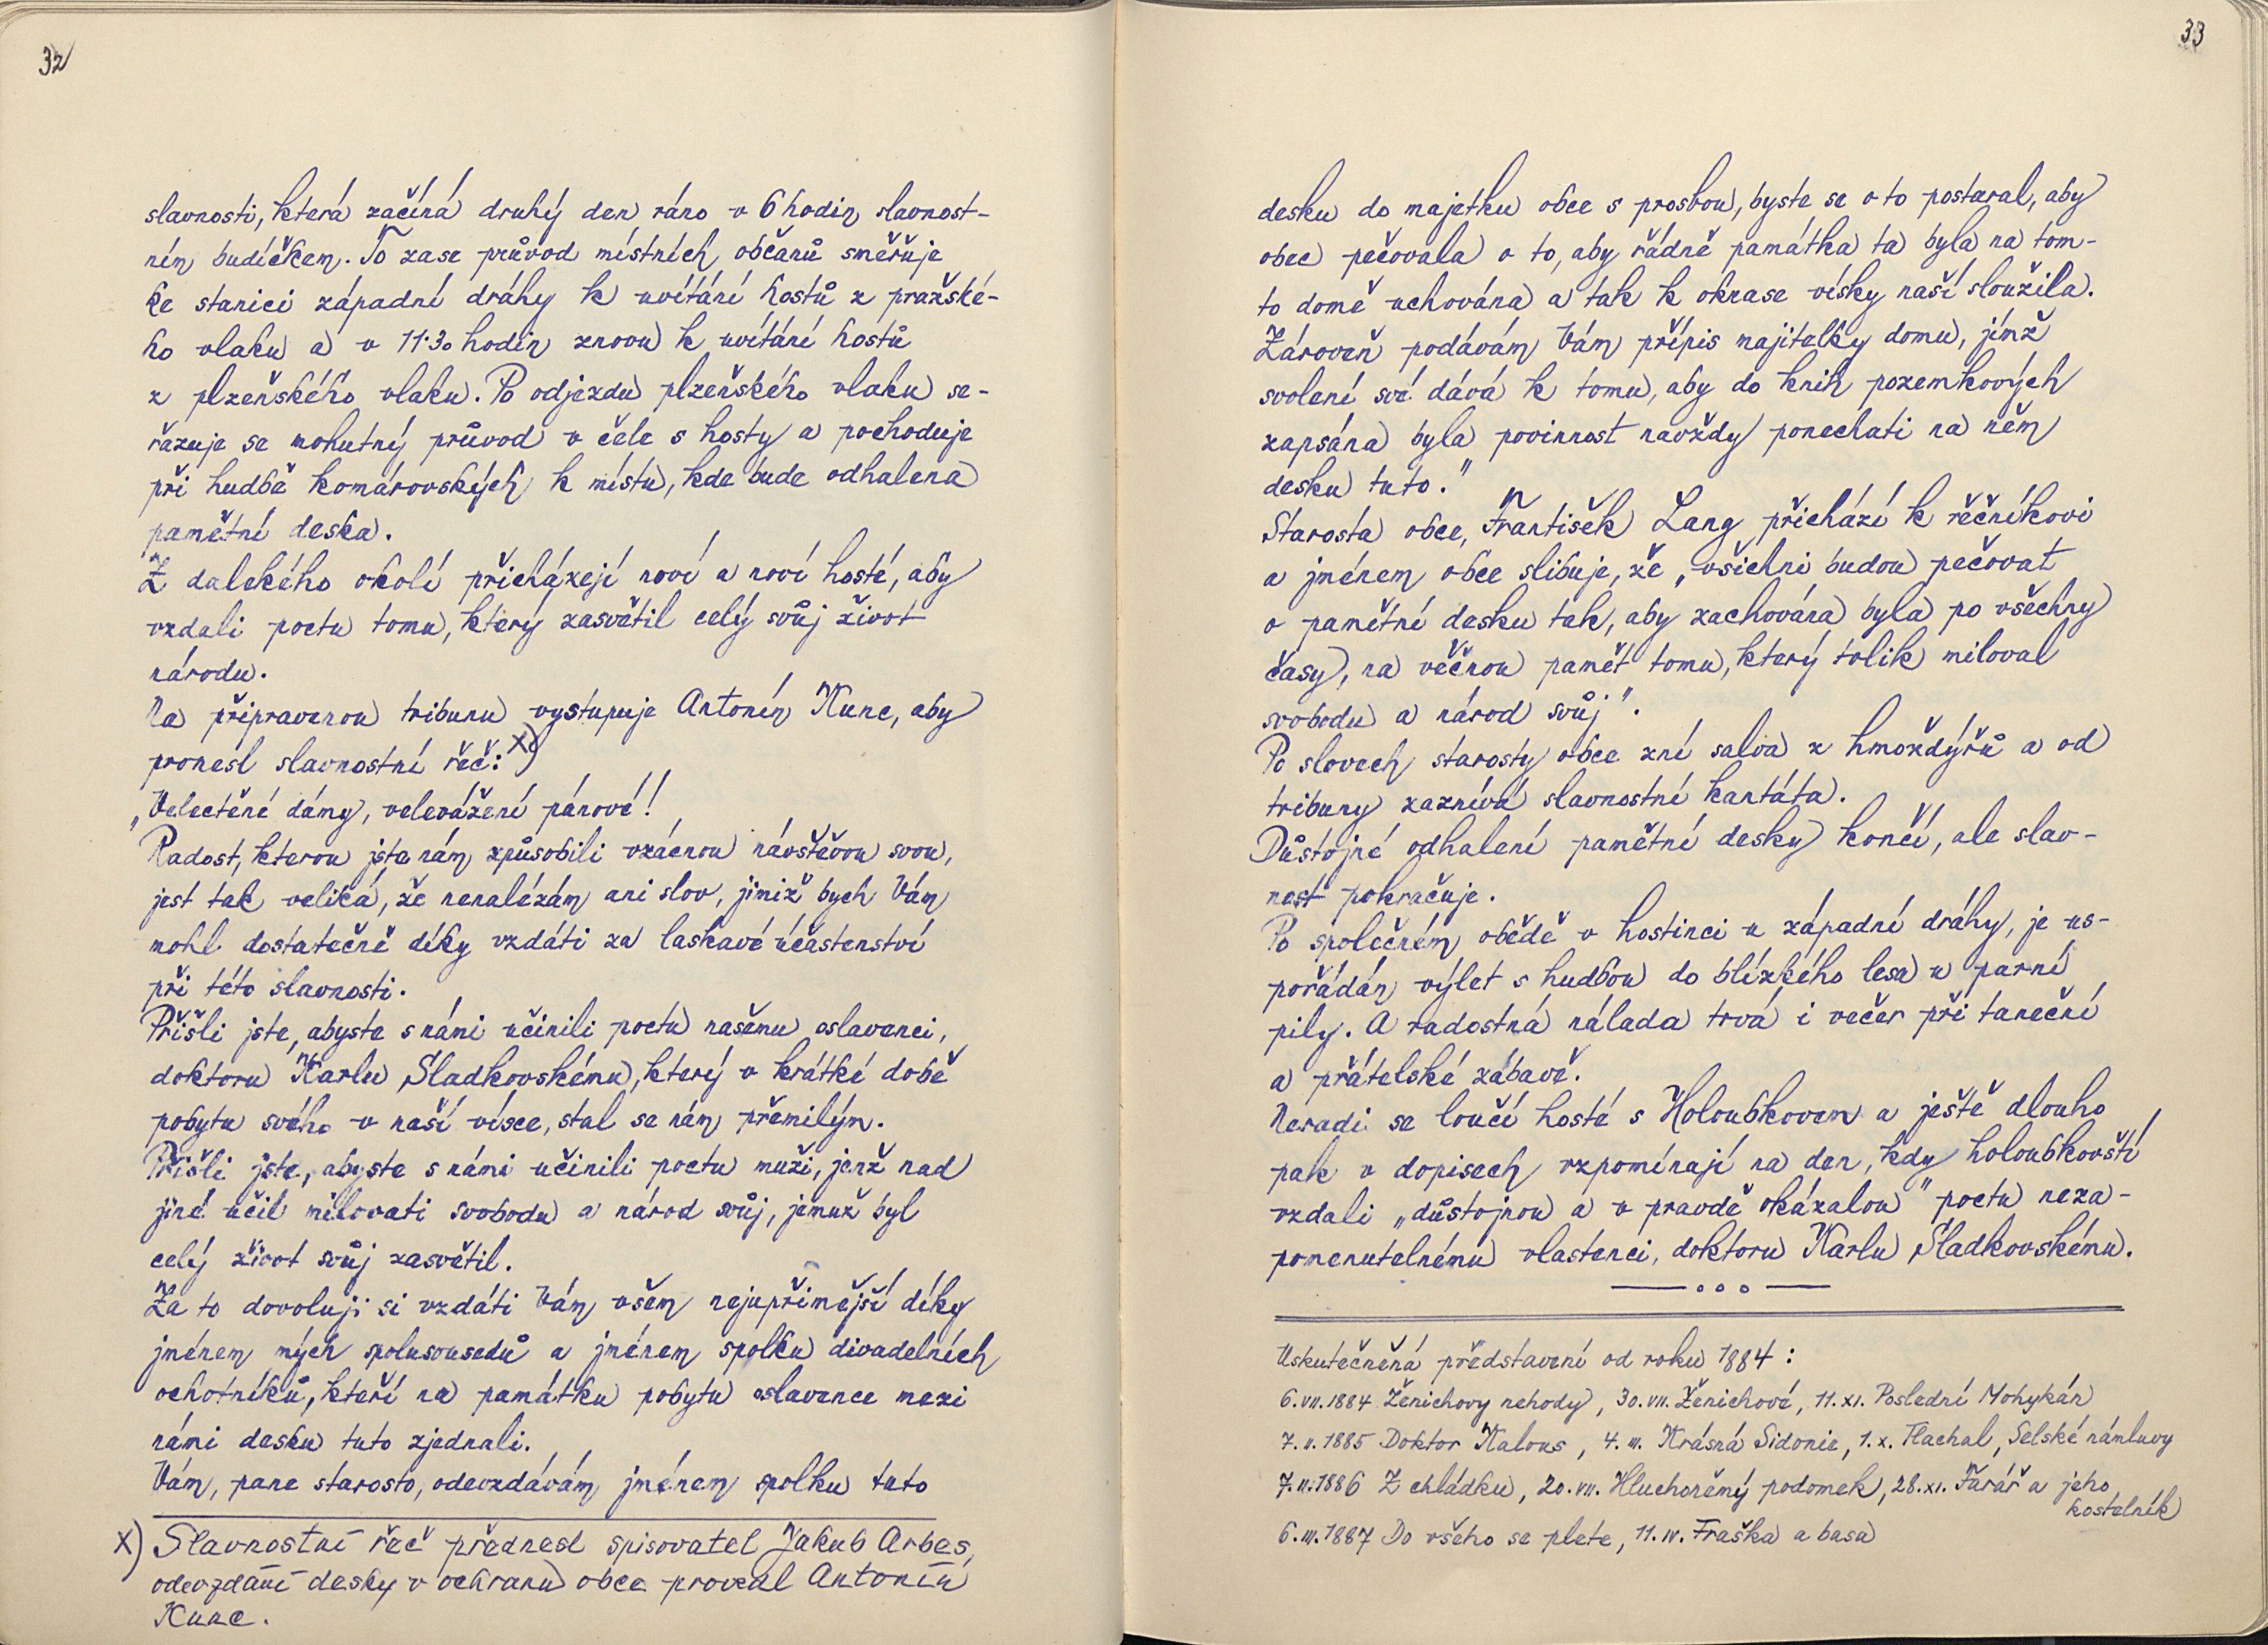 32
slavnosti, která začíná druhý den ráno v 6 hodin slavnost-
ním budíčkem. To zase průvod místních občanů směřuje
ke stanici západní dráhy k uvítání hostů z pražské-
ho vlaku a v 11·30 hodin znovu k uvítání hostů
z plzeňského vlaku. Po odjezdu plzeňského vlaku se-
řazuje se mohutný průvod v čele s hosty a pochoduje
při hudbě komárovských k místu, kde bude odhalena
pamětní deska.
Z dalekého okolí přicházejí noví a noví hosté, aby
vzdali poctu tomu, který zasvětil celý svůj život
národu.
Na připravenou tribunu vystupuje Antonín Kunc, aby
pronesl slavnostní řeč: x)
„Velectěné dámy, velevážení pánové!
Radost, kterou jste nám způsobili vzácnou návštěvou svou,
jest tak veliká, že nenalézám ani slov, jimiž bych Vám
mohl dostatečně díky vzdáti za laskavé účastenství
při této slavnosti.
Přišli jste, abyste s námi učinili poctu našemu oslavenci,
doktoru Karlu Sladkovskému, který v krátké době
pobytu svého v naší vísce, stal se nám přemilým.
Přišli jste, abyste s námi učinili poctu muži, jenž nad
jiné učil milovati svobodu a národ svůj, jemuž byl
celý život svůj zasvětil.
Za to dovoluji si vzdáti Vám všem nejupřimější díky
jménem mých spolusousedů a jménem spolku divadelních
ochotníků, kteří na památku pobytu oslavence mezi
námi desku tuto zjednali.
Vám, pane starosto, odevzdávám jménem spolku tuto
x) Slavnostní řeč přednesl spisovatel Jakub Arbes,
odevzdání desky v ochranu obce provedl Antonín
Kunc.
33
desku do majetku obce s prosbou, byste se o to postaral, aby
obec pečovala o to, aby řádně památka ta byla na tom-
to domě uchována a tak k okrase vísky naší sloužila.
Zároveň podávám Vám přípis majitelky domu, jímž
svolení své dává k tomu, aby do knih pozemkových
zapsána byla povinnost navždy ponechati na něm
desku tuto."
Starosta obce, František Lang přichází k řečníkovi
a jménem obce slibuje, že „všichni budou pečovat
o pamětní desku tak, aby zachována byla po všechny
časy, na věčnou paměť tomu, který tolik miloval
svobodu a národ svůj".
Po slovech starosty obce zní salva z hmoždýřů a od
tribuny zaznívá slavnostní kantáta.
Důstojné odhalení pamětní desky končí, ale slav-
nost pokračuje.
Po společném obědě v hostinci u západní dráhy, je us-
pořádán výlet s hudbou do blízkého lesa u parní
pily. A radostná nálada trvá i večer při taneční
a přátelské zábavě.
Neradi se loučí hosté s Holoubkovem a ještě dlouho
pak v dopisech vzpomínají na den, kdy holoubkovští
vzdali „důstojnou a v pravdě okázalou" poctu neza-
pomenutelnému vlastenci, doktoru Karlu Sladkovskému.
Uskutečněná představení od roku 1884:
6.VII.1884 Ženichovy nehody, 30.VII. Ženichové, 11.XI. Poslední Mohykán
7.II.1885 Doktor Kalous, 4.III. Krásná Sidonie, 1.X. Flachal, Selské námluvy
7.II.1886 Z chládku, 20.VII. Hluchoněmý podomek, 28.XI. Farář a jeho
kostelník
6.III.1887 Do všeho se plete, 11.IV. Fraška a basa